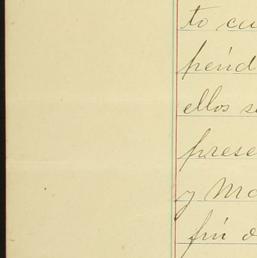 to cu
périd
ellos s
prese
y Mo
fin d